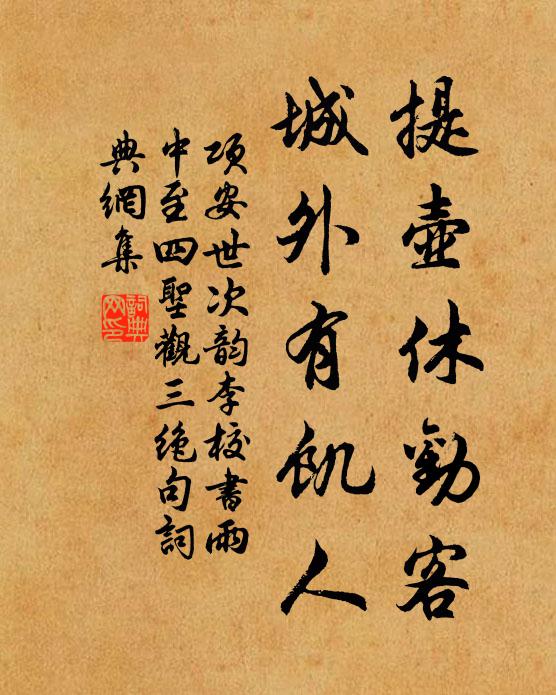 提壺休勸客
城外有飢人
項安世次韵李校書雨
中至四聖觀三絶句詞
典網集
詞典網印